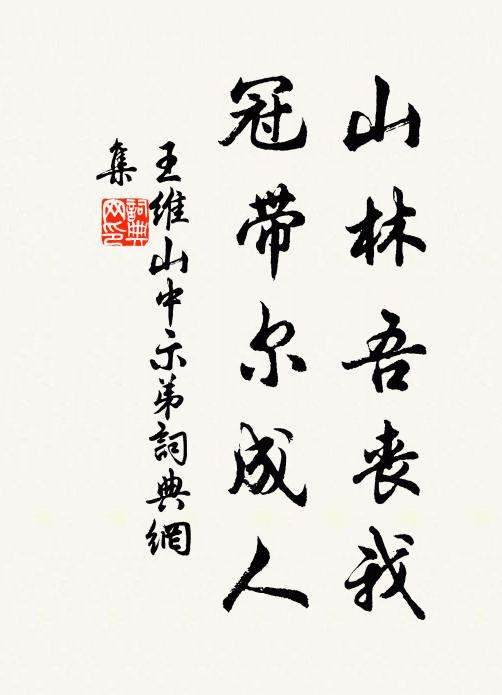 山林吾丧我
冠带尔成人
王维山中示弟詞典網
集
詞典网印